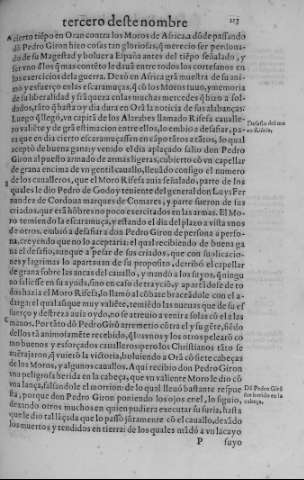 tercero deste nombre
113
cierto tiẽpo en Oran contra los Moros de Africa, a dõde passando
dõ Pedro Giron hizo cosas tan gloriosas, q̃ merecio ser perdona-
do de su Magestad y boluer a España antes del tiẽpo señalado, y
seruio en la guerra
en los exercicios dela guerra. Dexò en Africa grã muestra de su ani-
mo y esfuerço en las escaramuças, q̃ cõ los Moros tuuo, y memoria
de su liberalidad y frãqueza en las muchas mercedes q̃ hizo a sol-
dados, tãto q̃ hasta oy dia dura en Orã la noticia de sus alabanças
Luego q̃ llegò, vn capitã de los Alarabes llamado Rifesa caualle-
ro valiẽte y de grã estimacion entre ellos, lo embiò a desafiar, pa-
ra que en dia cierto escaramuçassen en espa tãtos a tãtos, lo qual
aceptò de buena gana; y venido el dia aplaçado salio don Pedro
Giron al puesto armado de armas ligeras, cubierto cõ vn capellar
de grana encima de vn gentil cauallo, lleuãdo consigo el numero
de los caualleros, que el Moro Rifesa auia señalado, parte de los
quales le dio Pedro de Godoy teniente del general don Luys Fer-
nandez de Cordoua marques de Comares, y parte fueron de sus
criados, que erã hõbres no poco exercitados en las armas. El Mo-
ro temiendo la escaramuça, y estando el dia del plazo a vista vnos
de otros, embiò a desafiar a don Pedro Giron de persona a perso-
na, creyendo que no lo aceptaria: el qual recibiendo de buena ga
na el desafio, aunque a pesar de sus criados, que con suplicacio-
nes y lagrimas lo apartauan de su proposito, derribò el capellar
de grana sobre las ancas del cauallo, y mandò a los suyos, q̃ ningu
no saliesse en su ayuda, sino en caso de traycio, y apartãdose de to
dos hazia el Moro Rifesa, lo llamò al cõbate braceãdole con el a-
darga: el qual aunque muy valiẽte, teniẽdo las nueuas que de su es
fuerço y destreza auia oydo, no se atreuio a venir a solas cõ el a las
manos. Por tãto dõ Pedro Girõ arremetio cõtra el y su gẽte, siẽdo
dellos tã animosamẽte recebido, q̃ los vnos y los otros peleardõ co
mo buenos y esforçados caualleros: pero los Christianos tãto se
mejorarõn, q̃ vuierõ la victoria, boluiendo a Orã cõ siete cabeças
de los Moros, y algunos cauallos. Aqui recibio don Pedro Giron
vna peligrosa herida en la cabeça, que vn valiente Moro le dio cõ
vna lança, falsandole el morrion: de lo qual lleuò bastante respue
sta, porque don Pedro Giron poniendo los ojos en el, lo siguio,
dexando otros muchos en quien pudiera executar su furia, hasta
que le dio tal lançada que lo passò juntamente cõ el cauallo, dexãdo
los muertos y tendidos en tierra: de los quales mãdò a vn lacayo
P
suyo
Desafio del mo
ro Rifesa.
Dõ Pedro Girõ
fue herido en la
cabeça.